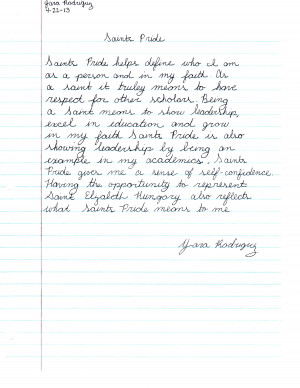 Yara Rodriguez
4-22-13
Saints Pride
Saints Pride helps define who I am
as a person and in my faith As
a saint it truley means to have
respect for other scholars. Being
a Saint means to show leadership,
excel in education and grow
in my faith Saints Pride is also
showing leadership by being an
example in my academics. Saints
Pride gives me a sense of self-confidence.
Having the opportunity to represent
Saint Elizabth Hungary also reflects
what Saints Pride means to me
Yara Rodriguez